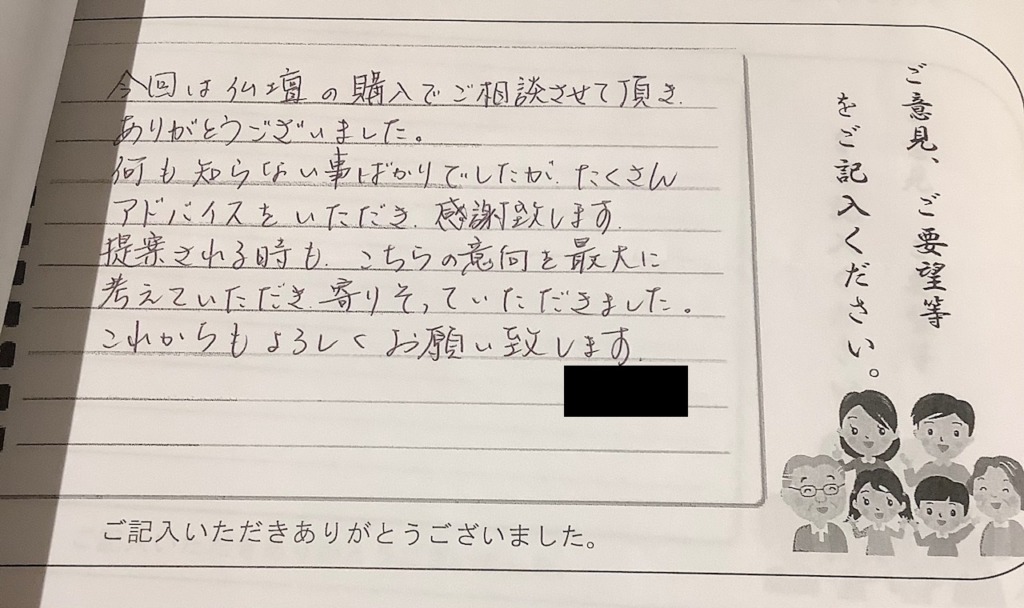 ご意見、ご要望等
をご記入ください。
今回は仏壇の購入でご相談させて頂き
ありがとうございました。
何も知らない事ばかりでしたが、たくさん
アドバイスをいただき、感謝致します。
提案される時も、こちらの意向を最大に
考えていただき、寄りそっていただきました。
これからもよろしくお願い致します。
ご記入いただきありがとうございました。